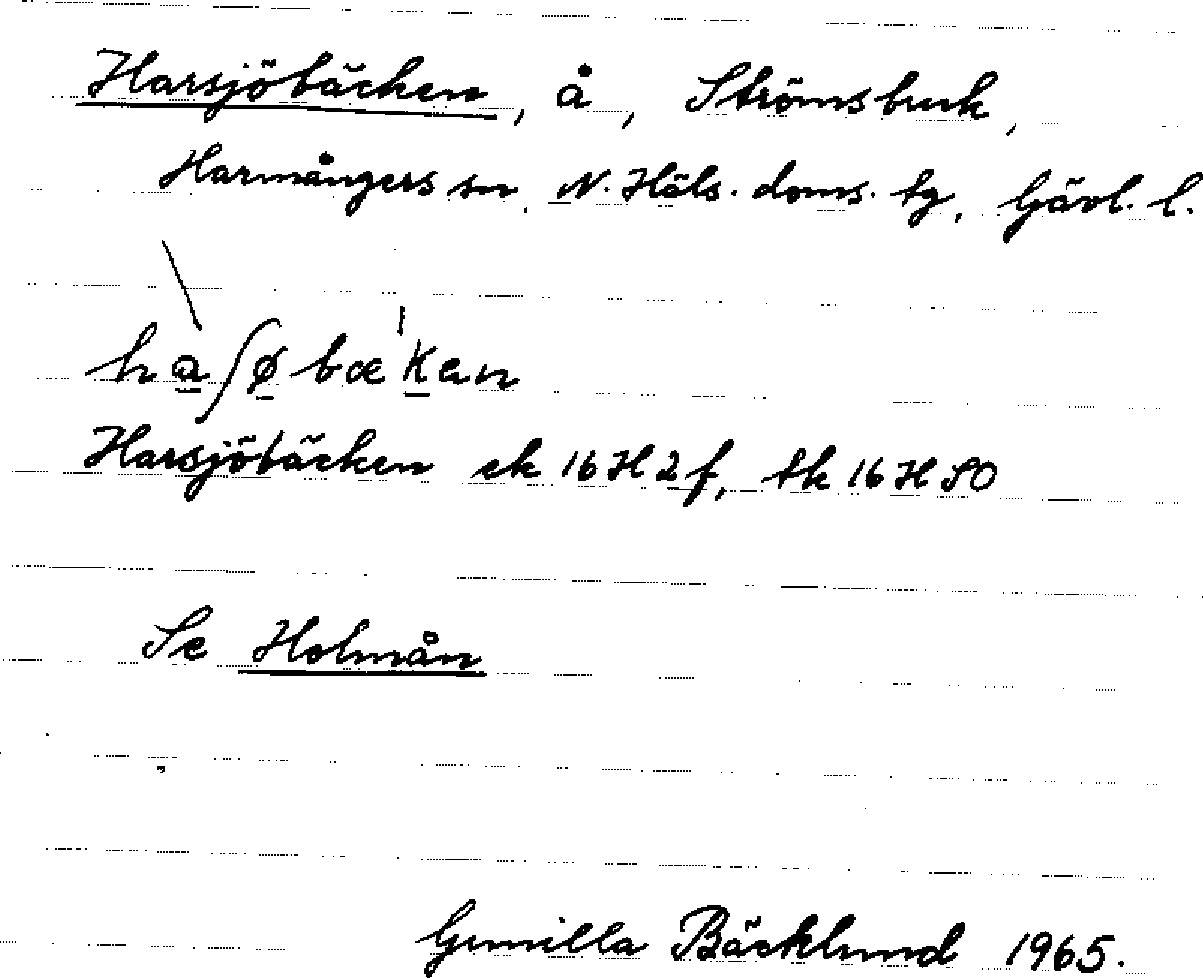 Harsjöbäcken, å, Strömsbruk,
Harmångers sn, N. Häls. doms. tg, Gävl. l.
haʃøbækan
Harsjöbäcken ek 16H2f, tk 16HSO
Se Holmån
Gunilla Bäcklund 1965.